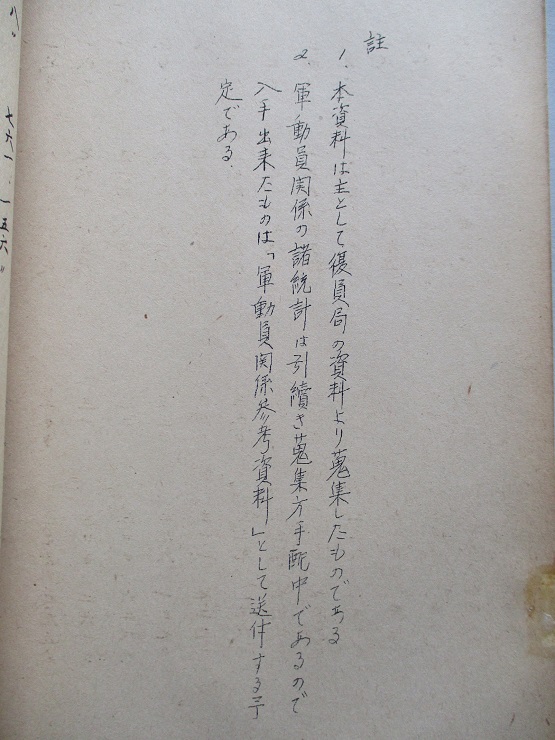 註
1、本資料は主として復員局の資料より蒐集したものである
2、軍動員関係の諸統計は引続き蒐集方手配中であるので
入手出来たものは「軍動員関係参考資料」として送付する予
定である.
八〃
七六一、一五六〃